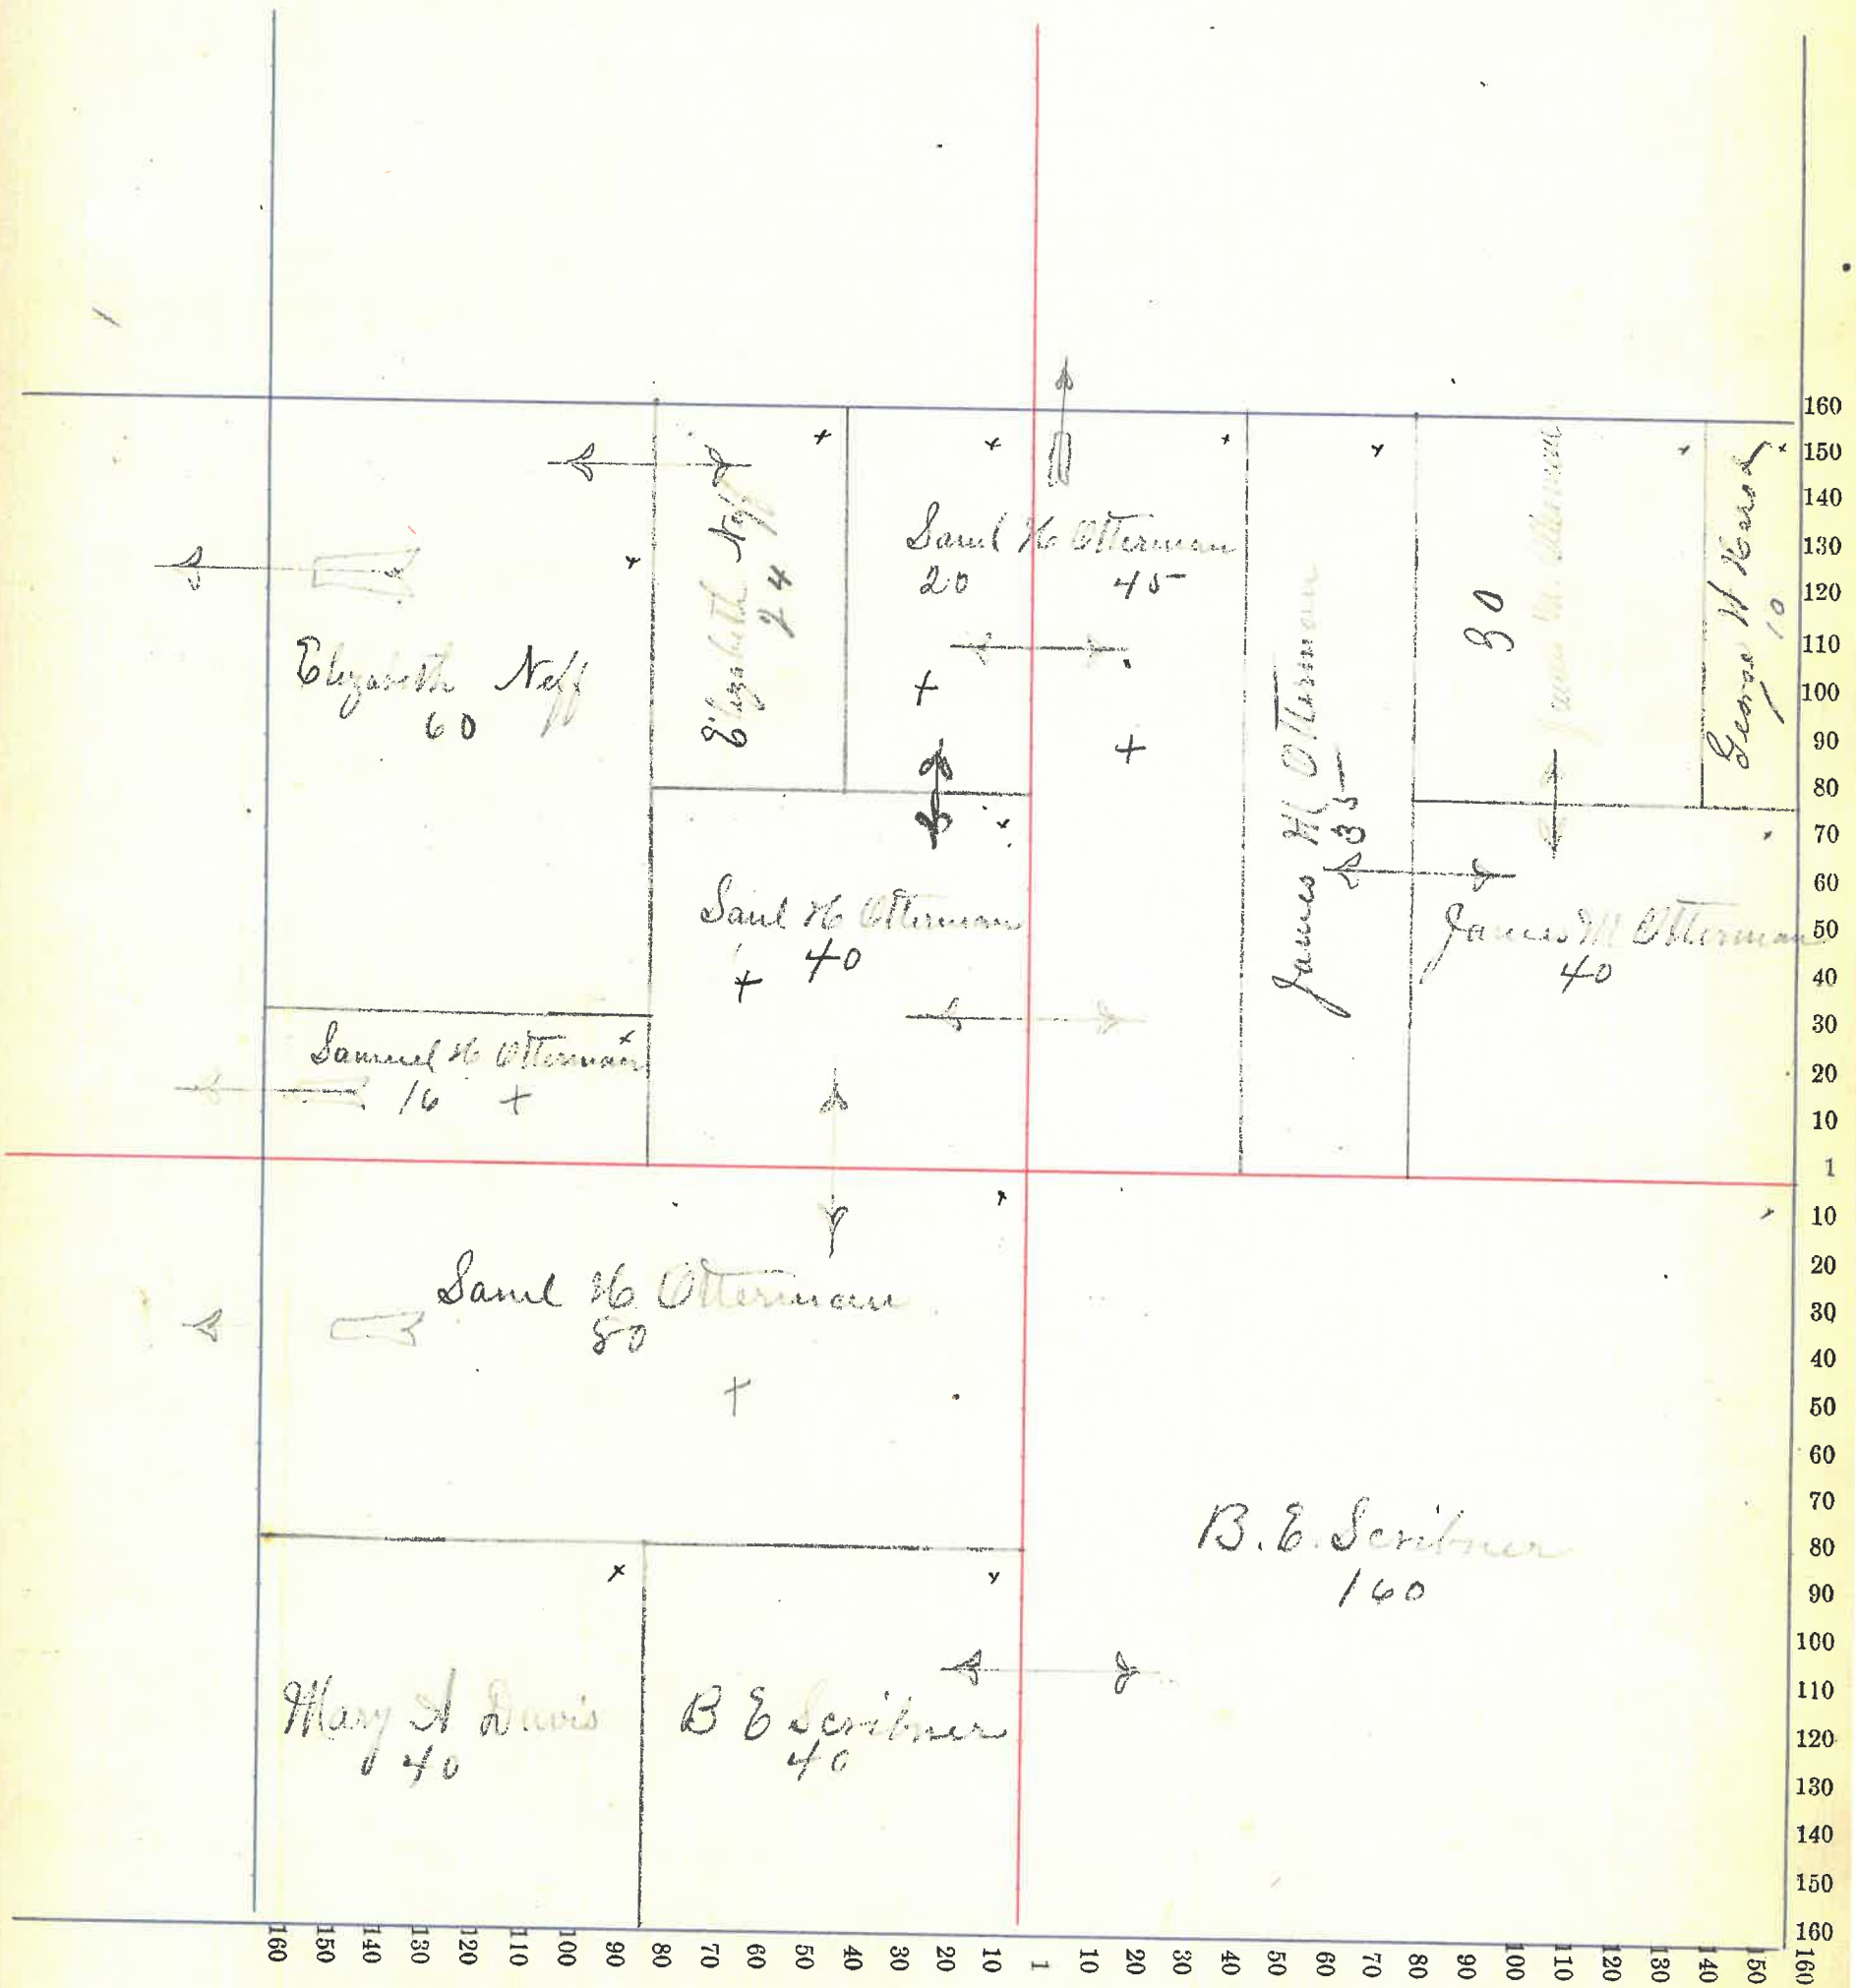 Elizabeth Neff
60
Elizabeth Neff
24
Saml H Otterman
20 45
James M Otterman
35
30
James M Otterman
George W
10
Samuel H Otterman
16
Saml H Otterman
40
James M Otterman
40
Saml H Otterman
80
B. E. Scribner
160
Mary A Davis
40
B E Scribner
40
160
150
140
130
120
110
100
90
80
70
60
50
40
30
20
10
1
10
20
30
40
50
60
70
80
90
100
110
120
130
140
150
160
160 150 140 130 120 110 100 90 80 70 60 50 40 30 20 10 1 10 20 30 40 50 60 70 80 90 100 110 120 130 140 150 160